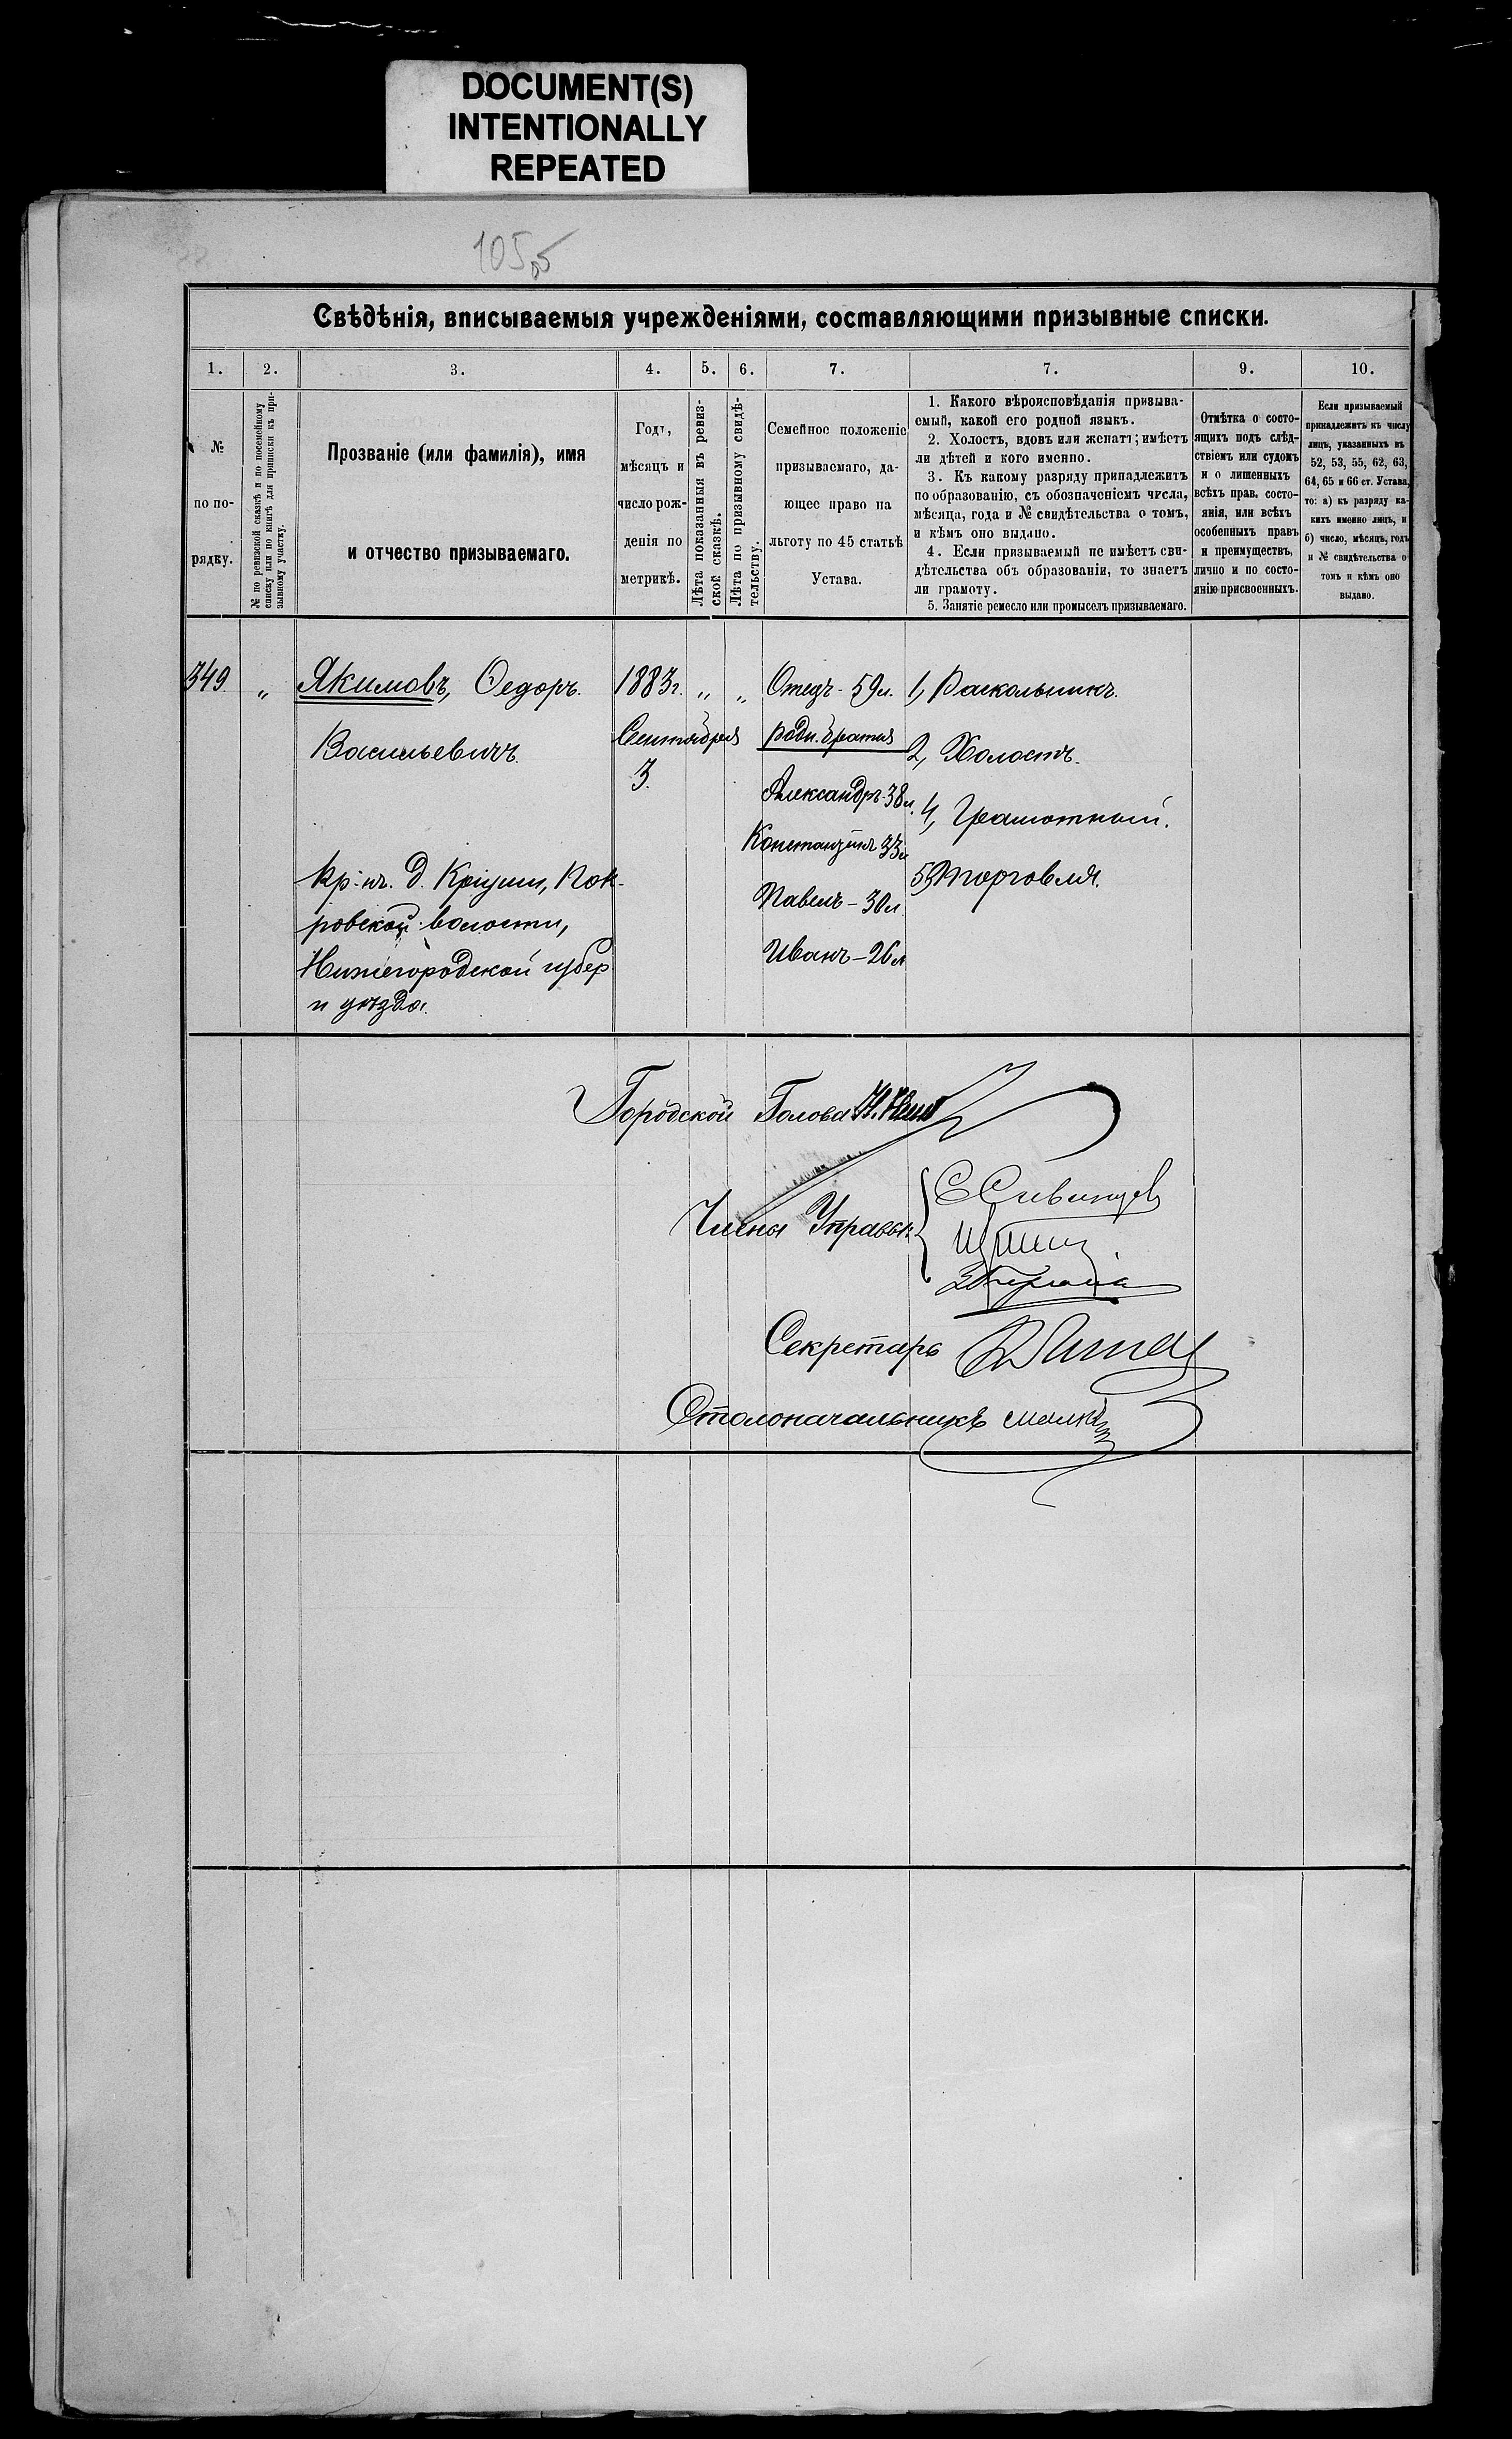 DOCUMENT(S)
INTENTIONALLY
REPEATED
105
Свѣдѣнія, вписываемыя учрежденіями, составляющими призывные списки.
1.
2.
3.
4.
5.
6.
7.
7.
9.
10.
№
по по-
рядку.
№ по ревизской сказкѣ и по посемейному
списку или по книгѣ для приписки къ при-
зывному участку.
Прозваніе (или фамилія), имя
и отчество призываемаго.
Годъ,
мѣсяцъ и
число рож-
денія по
метрикѣ.
Лѣта показанныя въ ревиз-
ской сказкѣ.
Лѣта по призывному свидѣ-
тельству.
Семейное положеніе
призываемаго, да-
ющее право на
льготу по 45 статьѣ
Устава.
1. Какого вѣроисповѣданія призыва-
емый, какой его родной языкъ.
2. Холостъ, вдовъ или женатъ; имѣетъ
ли дѣтей и кого именно.
3. Къ какому разряду принадлежитъ
по образованію, съ обозначеніемъ числа,
мѣсяца, года и № свидѣтельства о томъ,
и кѣмъ оно выдано.
4. Если призываемый не имѣетъ сви-
дѣтельства объ образованіи, то знаетъ
ли грамоту.
5. Занятіе ремесло или промыселъ призываемаго.
Отмѣтка о состо-
ящихъ подъ слѣд-
ствіемъ или судомъ
и о лишенныхъ
всѣхъ прав. состо-
янія, или всѣхъ
особенныхъ правъ
и преимуществъ,
лично и по состо-
янію присвоенныхъ.
Если призываемый
принадлежитъ къ числу
лицъ, указанныхъ въ
52, 53, 55, 62, 63,
64, 65 и 66 ст. Устава,
то: а) къ разряду ка-
кихъ именно лицъ, и
б) число, мѣсяцъ, годъ
и № свидѣтельства о
томъ и кѣмъ оно
выдано.
349. " Якимовъ, Ѳедоръ. 1883г. " " Отецъ - 59л. 1, Раскольникъ.
Васильевичъ. Сентября родн. братья 2, Холостъ.
3. Александръ - 38л. 4, Грамотный.
Константинъ 33л
кр-нъ. д. Кріуши, Пок- 5, Торговля.
Павелъ - 30л.
ровской волости,
Нижегородской губер Иванъ - 26л
и уѣзда.
Городской Голова
Члены Управы:
Секретарь
Столоначальникъ